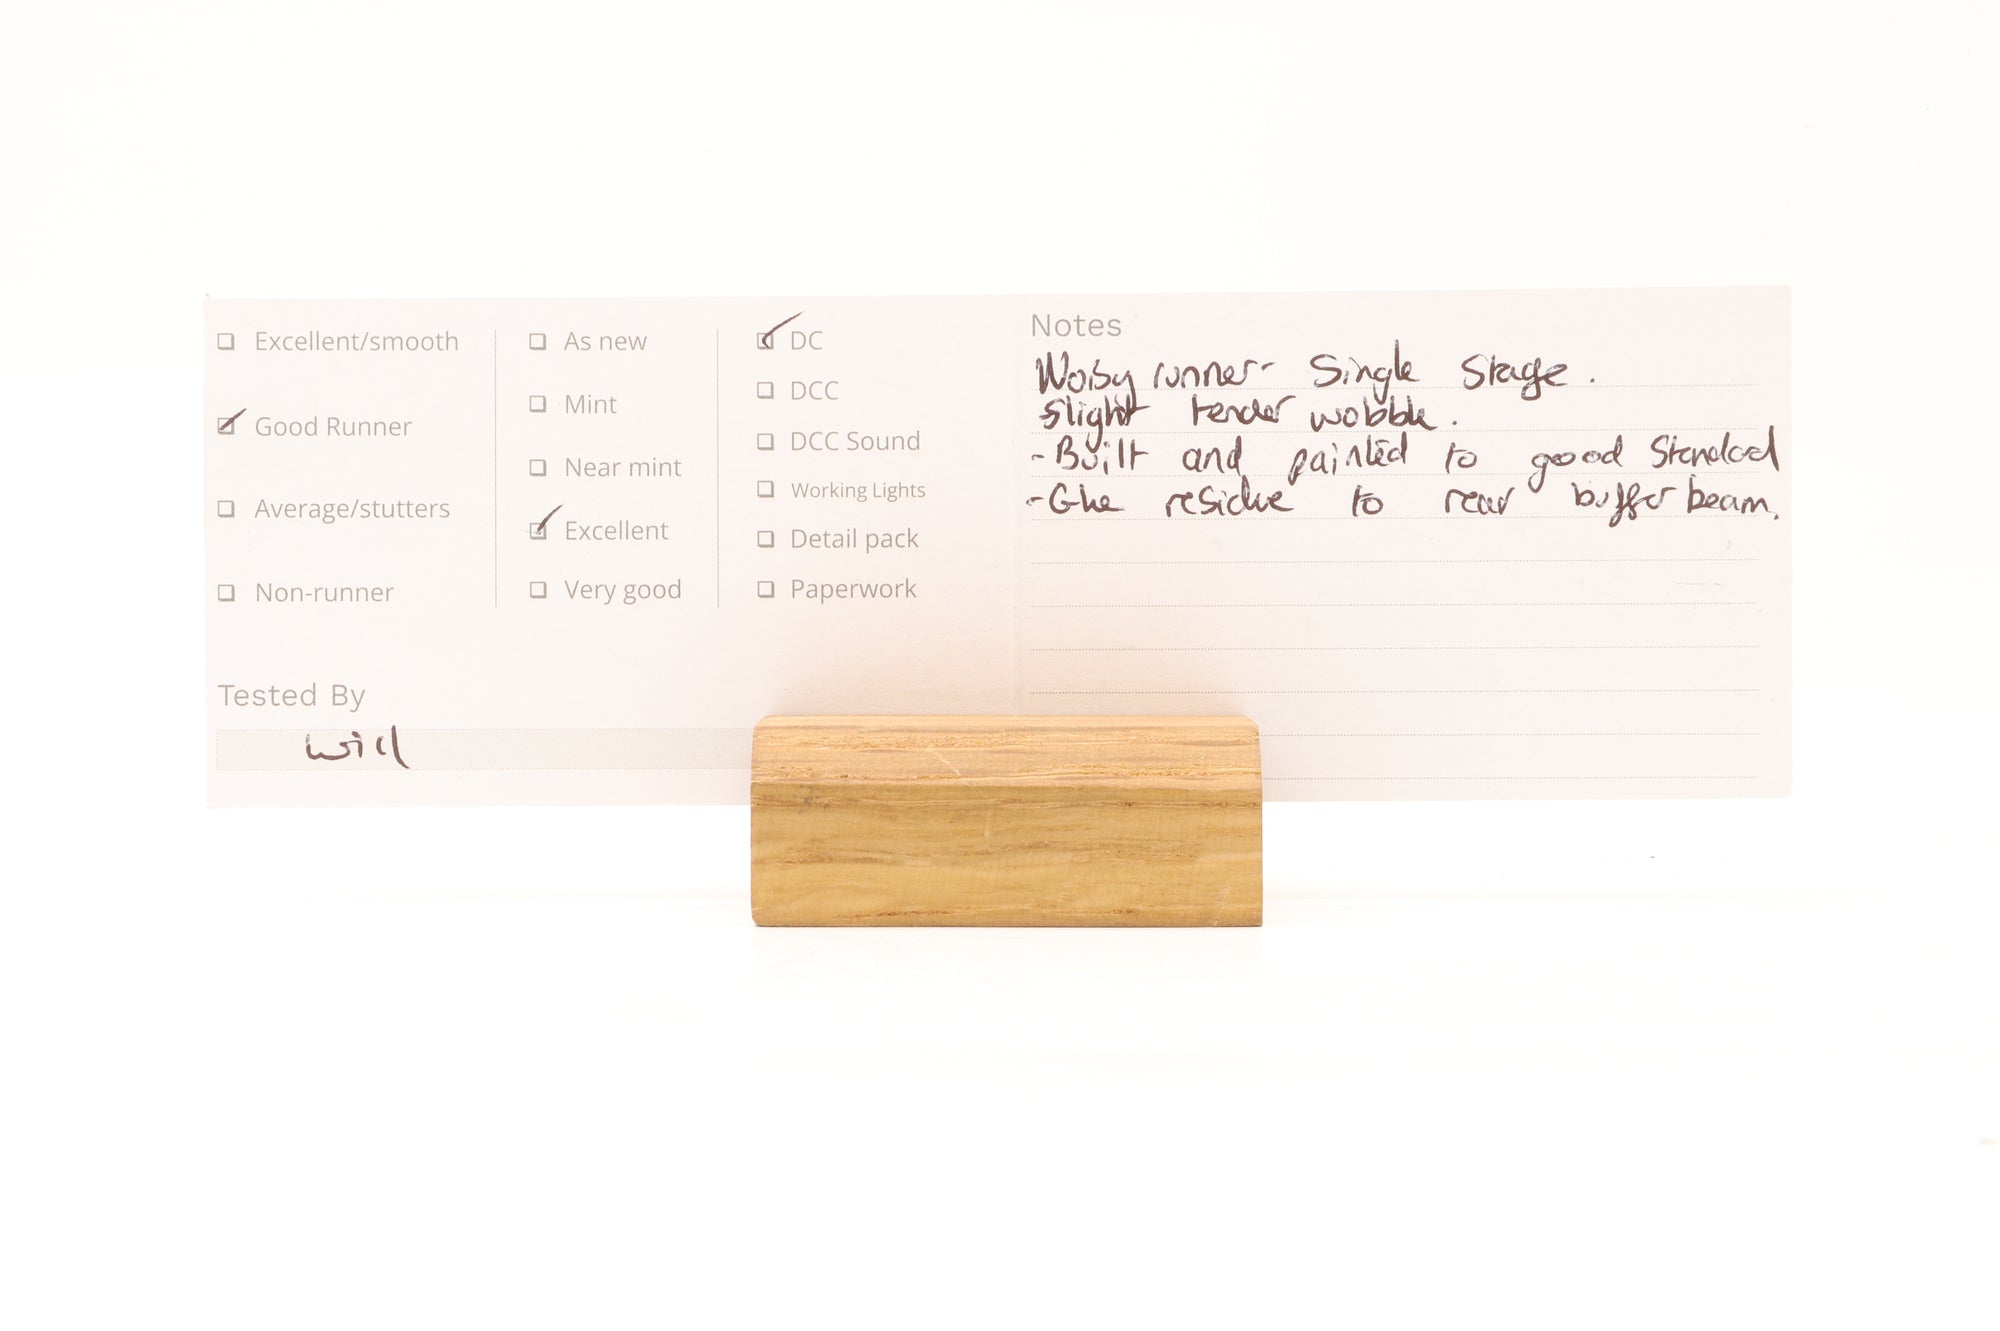 Excellent/smooth
Good Runner
Average/stutters
Non-runner
As new
Mint
Near mint
Excellent
Very good
DC
DCC
DCC Sound
Working Lights
Detail pack
Paperwork
Tested By
Will
Notes
Noisy runner- Single Stage.
Slight tender wobble.
-Built and painted to good Standard
-Glue residue to rear buffer beam.